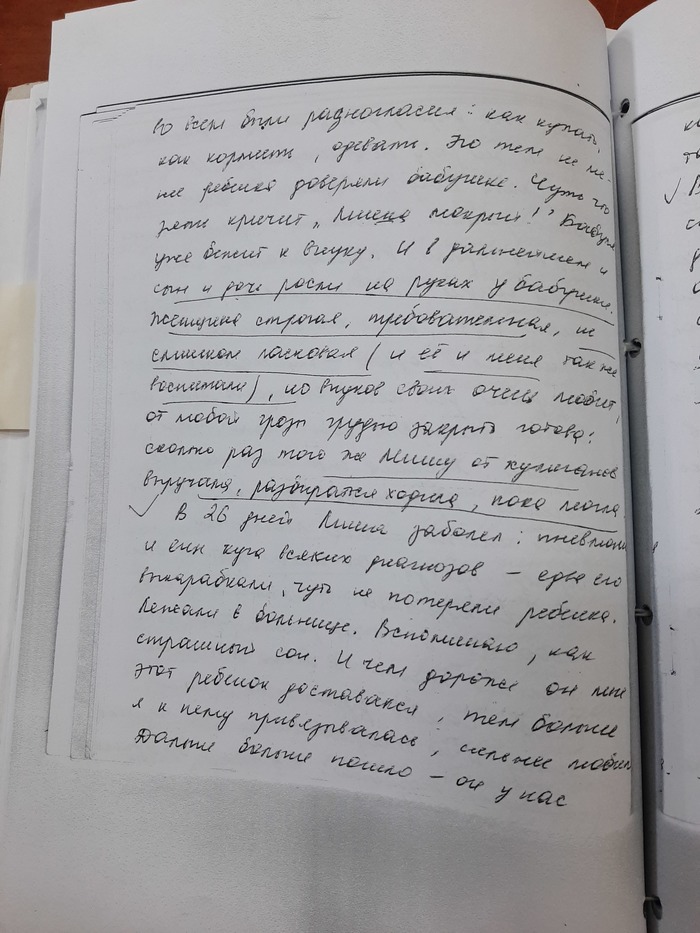 во всем были разногласия: как купать,
как кормить, одевать. Но тем не ме-
нее ребенка доверяли бабушке. Чуть что
зять кричит „Миша мокрый!" Бабушка
уже бежит к внуку. И в дальнейшем и
сын и дочь росли на руках у бабушки.
Женщина строгая, требовательная, не
слишком ласковая (и её и меня так же
воспитали), но внуков своих очень любит,
от любой грозы грудью закрыть готова:
сколько раз того же Мишу от хулиганов
выручала, разбираться ходила, пока могла.
В 26 дней Миша заболел: пневмония
и ещё куча всяких диагнозов – едва его
выкарабкали, чуть не потеряли ребенка.
Лежали в больнице. Вспоминаю, как
страшный сон. И чем дороже он мне
этот ребенок доставался, тем больше
я к нему привязывалась, сильнее любила
Дальше больше пошло – он у нас